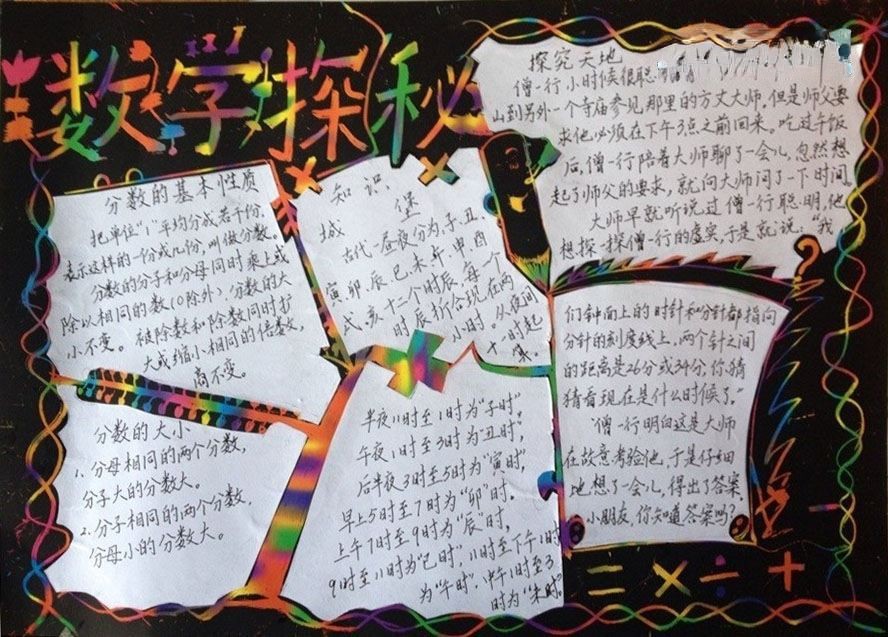 数学探秘
分数的基本性质
把单位"1"平均分成若干份,
表示这样的一份或几份,叫做分数
分数的分子和分母同时乘上或
除以相同的数(0除外),分数的大
小不变。被除数和除数同时扩
大或缩小相同的倍数,
商不变。
分数的大小
1.分母相同的两个分数,
分子大的分数大。
2.分子相同的两个分数,
分母小的分数大。
知识
城堡
古代一昼夜分为,子、丑、
寅、卯、辰、巳、未、午、申、酉
戌、亥十二个时辰,每一个
时辰折合现在两
小时。从夜间
十一时起
算。
半夜11时至1时为"子时",
午夜1时至3时为"丑时",
后半夜3时至5时为"寅时",
早上5时至7时为"卯"时。
上午7时至9时为"辰"时,
9时至11时为"巳时",11时至下午1时
为"午时",1时至3
时为"未时。
探究天地
僧一行小时候很聪
山到另外一个寺庙参见那里的方丈大师。但是师父要
求他必须在下午3点之前回来。吃过午饭
后,僧一行陪着大师聊了一会儿,忽然想
起了师父的要求,就向大师问了一下时间。
大师早就听说过僧一行聪明,他
想探一探僧一行的虚实,于是就说:"我
们钟面上的时针和分针都指向
分针的刻度线上,两个针之间
的距离是26分或34分,你猜
猜看现在是什么时候了。"
僧一行明白这是大师
在故意考验他,于是仔细
地想了一会儿,得出了答案,
小朋友,你知道答案吗?
= × ÷ +